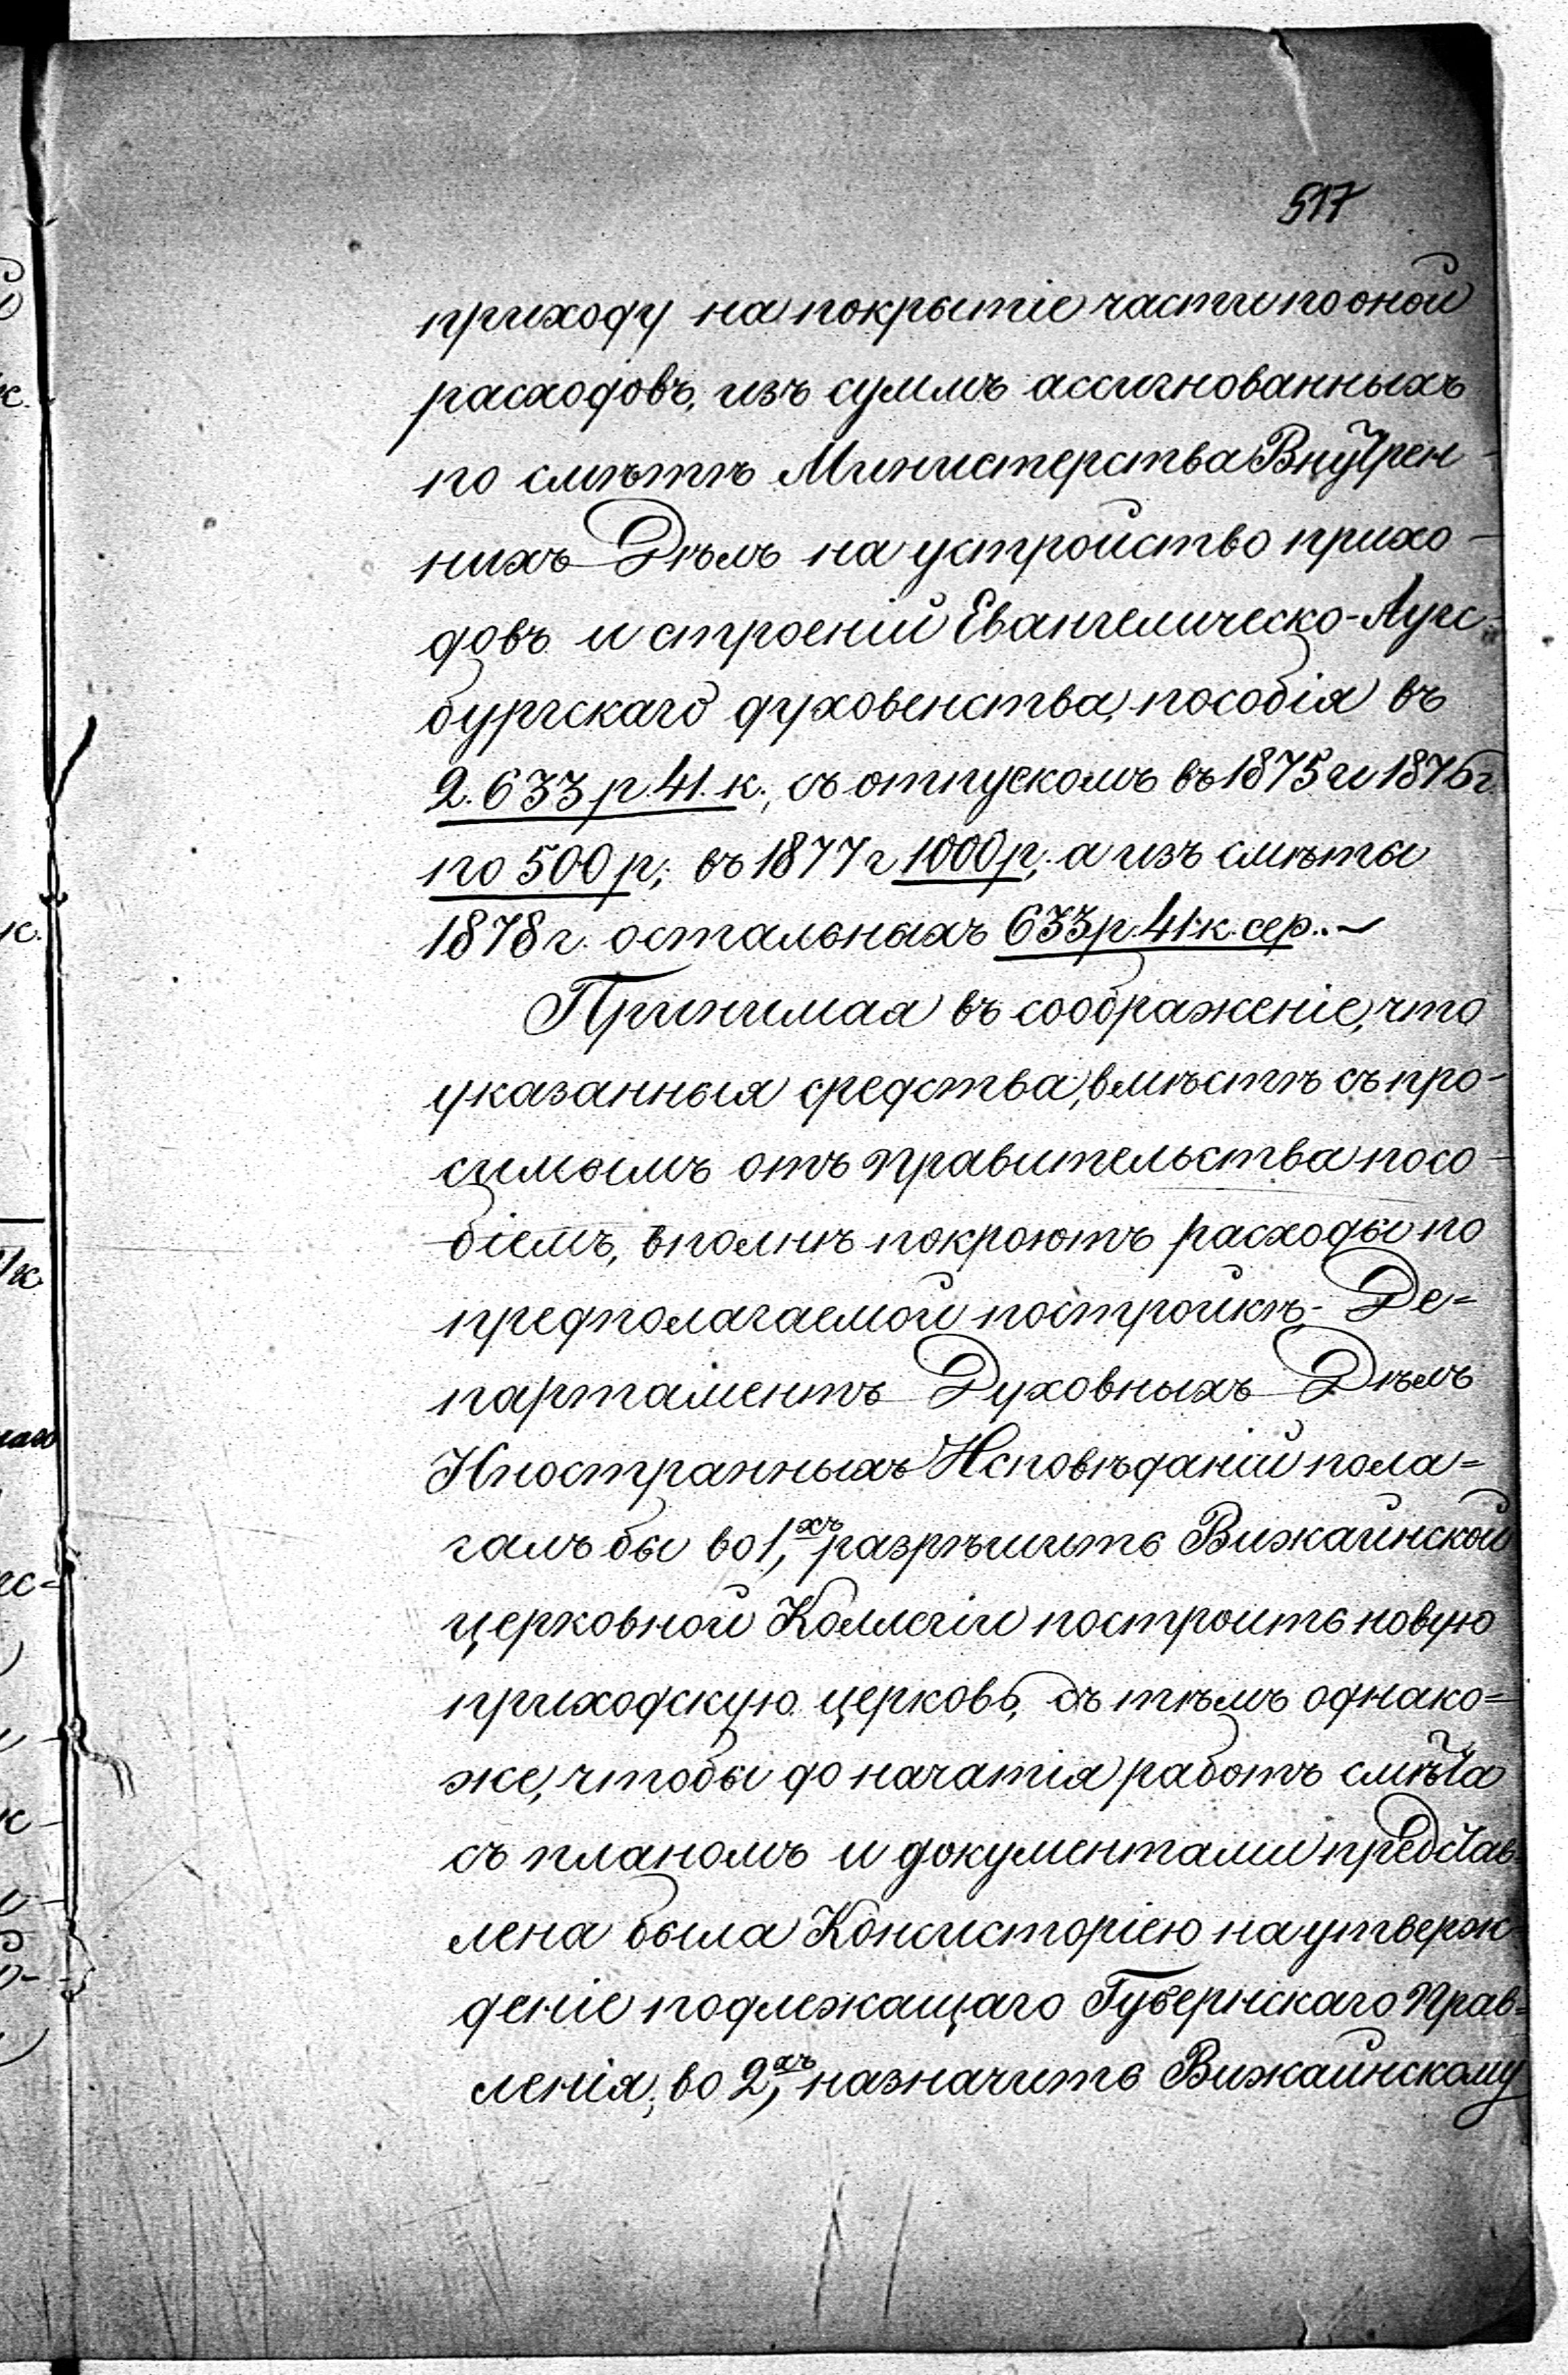 517
приходу на покрытіе части по оной
расходовъ, изъ суммъ ассигнованныхъ
по смѣтѣ Министерства Внутрен-
нихъ Дѣлъ на устройство прихо-
довъ и строеній Евангелическо-Аугс-
бургскаго духовенства, пособія въ
2.633 р. 41. к., съ отпускомъ въ 1875 и 1876 г.
по 500 р., въ 1877 г 1000 р., а изъ смѣты
1878 г. остальныхъ 633 р. 41 к. сер..~
Принимая въ соображеніе, что
указанныя средства, вмѣстѣ съ про-
симымъ отъ правительства посо-
біемъ, вполнѣ покроютъ расходы по
предполагаемой постройкѣ, Де=
партаментъ Духовныхъ Дѣлъ
Иностранныхъ Исповѣданій пола=
галъ бы во 1,хъ разрѣшить Вижайнской
церковной Коллегіи построить новую
приходскую церковь, съ тѣмъ однако=
же, чтобы до начатія работъ смѣта
съ планомъ и документами представ=
лена была Консисторіею на утверж-
деніе подлежащаго Губернскаго Прав=
ленія, во 2,хъ назначить Вижайнскому